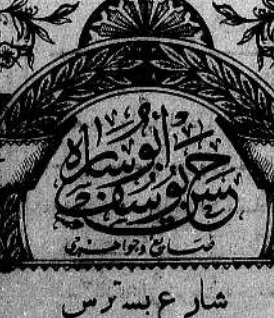 حسن يوسف أبو ساره
صايغ وجواهرجى
شارع بسترس